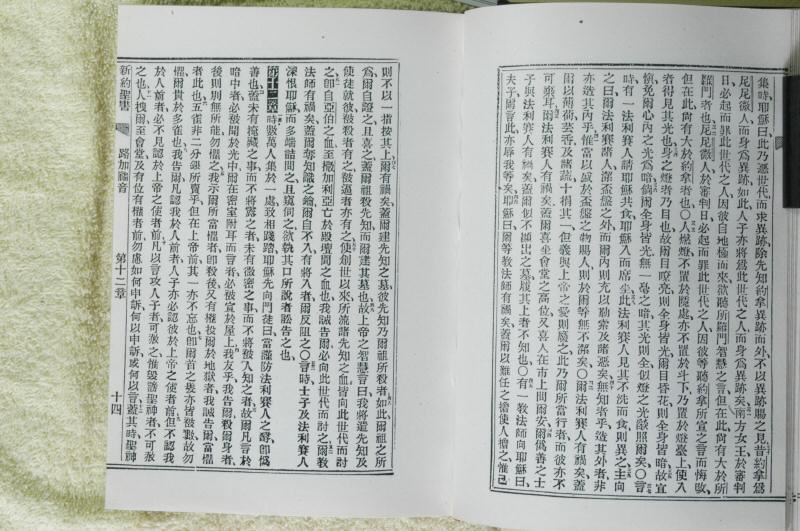 集時耶穌曰此乃慝世代而求異跡除先知約拿異跡而外不以異跡賜之見昔約拿爲
尼尼微人而身爲異跡如此人子亦將爲此世代之人而身爲異跡矣南方女王於審判
日必起而罪此世代之人因彼自地極而來欲聽所羅門智慧之言但在此尚有大於所
羅門者也尼尼微人於審判日必起而罪此世代之人因彼等聽約拿所宣之言而悔改
但在此尚有大於約拿者也〇人燃燈不置於隱處亦不置於斗下乃置於燈臺上使入
者得見其光也身之燈者乃目也故爾目暸亮則全身皆光爾目昏花則全身皆暗故宜
愼免爾心內之光爲暗倘爾全身皆光無一毫之暗其光則全似燈之光燄照爾矣〇言
時有一法利賽人請耶穌共食耶穌入而席坐此法利賽人見其不洗而食則異之主向
之曰爾法利賽諸人潔盃盤之外而爾內則充以勒索及諸惡矣無知者乎造其外者非
亦造其內乎惟當以盛於盃盤之物賜人則於爾等無不潔矣〇爾法利賽人有禍矣蓋
爾以薄荷芸香及諸蔬十捐其一但義與上帝之愛則廢之此乃爾所當行者而彼亦不
可棄耳爾法利賽人有禍矣蓋爾喜坐會堂之高位又喜人在市上問爾安爾僞善之士
與法利賽人有禍矣蓋爾似不顯出之墓履其上者不知也〇有一教法師向耶穌曰
夫子爾言此亦辱我等矣耶穌曰爾等教法師有禍矣蓋爾以難任之擔使人擔之惟己
則不以一指按其上爾有禍矣蓋爾建先知之墓彼先知乃爾祖所殺者如此爾祖之所
爲爾自證之且喜之蓋爾祖殺先知而爾建其墓也故上帝之智慧言曰我將遣先知及
使徒就彼彼殺者有之被逼者亦有之使創世以來所流諸先知之血皆向此世代而討
之卽自亞伯之血至撒加利亞亡於殿壇間之血也我誠告爾必向此世代而討之爾教
法師有禍矣蓋爾奪知識之鑰爾自不入有將入者爾反阻之〇言時士子及法利賽人
深恨耶穌而多端詰問之且窺伺之欲執其口所說者訟告之也
第十二章時數萬人集於一處致相踐踏耶穌先向門徒曰當謹防法利賽人之酵卽僞
善也蓋未有掩藏之事而不將露之者未有微密之事而不將被人知之者故爾凡言於
暗中者必被聞於光中爾在密室附耳而言者必被宣於屋上我友乎我告爾殺爾身者
後則別無所能勿懼之我示爾所當懼者卽殺後又有權投爾於地獄者我誠告爾當懼
者此也五雀非二分銀所賣乎但在上帝前其一亦不忘也卽爾首之髮亦皆被數故勿
懼爾貴於多雀也我告爾凡認我於人前者人子亦必認彼於上帝之使者前但不認我
於人前者必不見認於上帝之使者前凡以言攻人子者可赦之惟毀謗聖神者不可赦
之也人拽爾至會堂及有位有權者前勿慮如何申訴何以申訴或何以言蓋其時聖神
新約聖書 路加福音 第十二章 十四